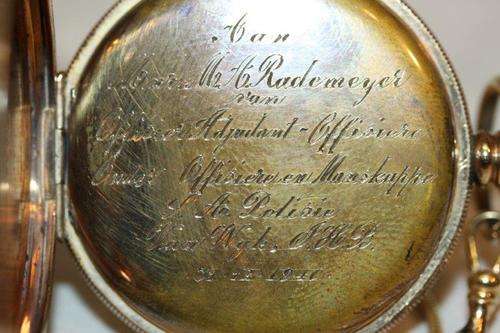 Aan
M. C. Rademeyer
van
Offisier Adjudant-Offisiere
Offisiere en Manskappe
S. A. Polisie
Van Wyk, J.H.B.
1940